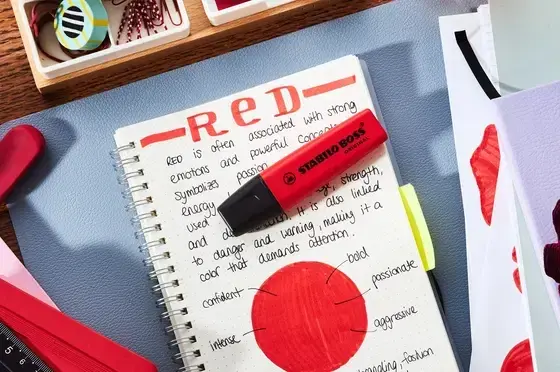 RED
RED is often associated with strong
emotions and powerful concepts
Symbolizes passion
energy
used strength,
and It is also linked
to danger and warning, making it a
color that demands attention.
STABILO BOSS
ORIGINAL
bold
confident
passionate
intense
aggressive
fashion
5 6